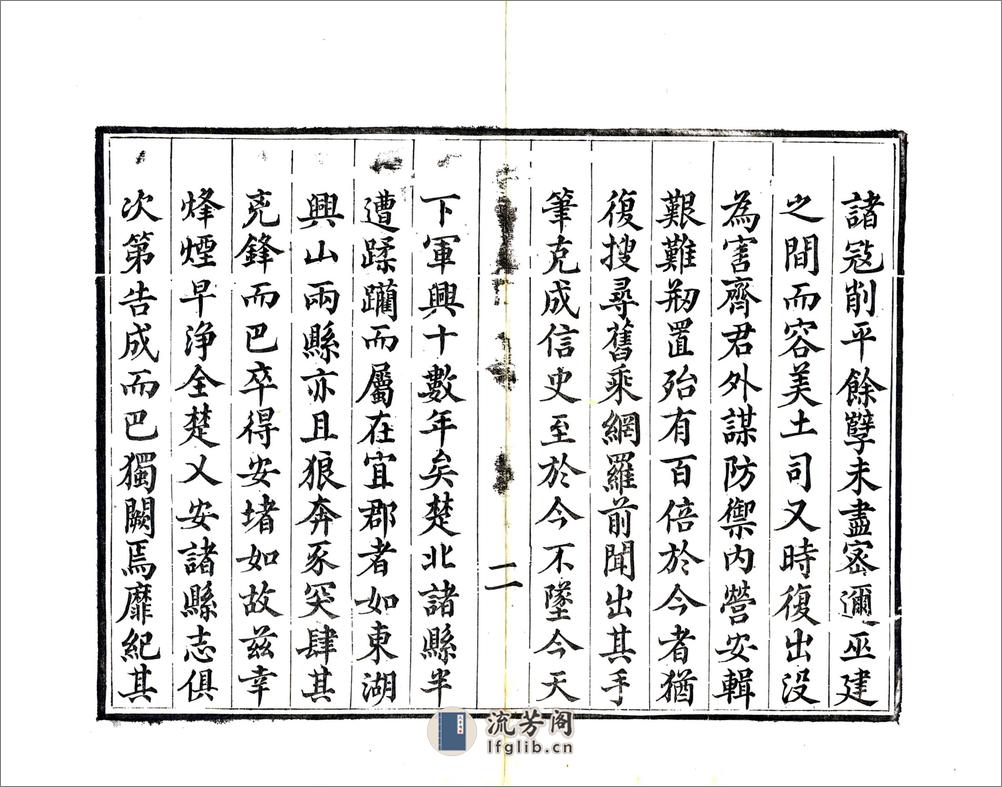 諸寇削平餘孽未盡密邇巫建
之間而容美土司又時復出没
為害齊君外謀防禦内營安輯
艱難剏置殆有百倍於今者猶
復搜尋舊乘網羅前聞出其手
筆克成信史至於今不墜今天
二
下軍興十數年矣楚北諸縣半
遭蹂躪而屬在宜郡者如東湖
興山兩縣亦且狼奔豕突肆其
兇鋒而巴卒得安堵如故兹幸
烽煙早净全楚乂安諸縣志俱
次第告成而巴獨闕焉靡紀其
流芳阁
lfglib.cn